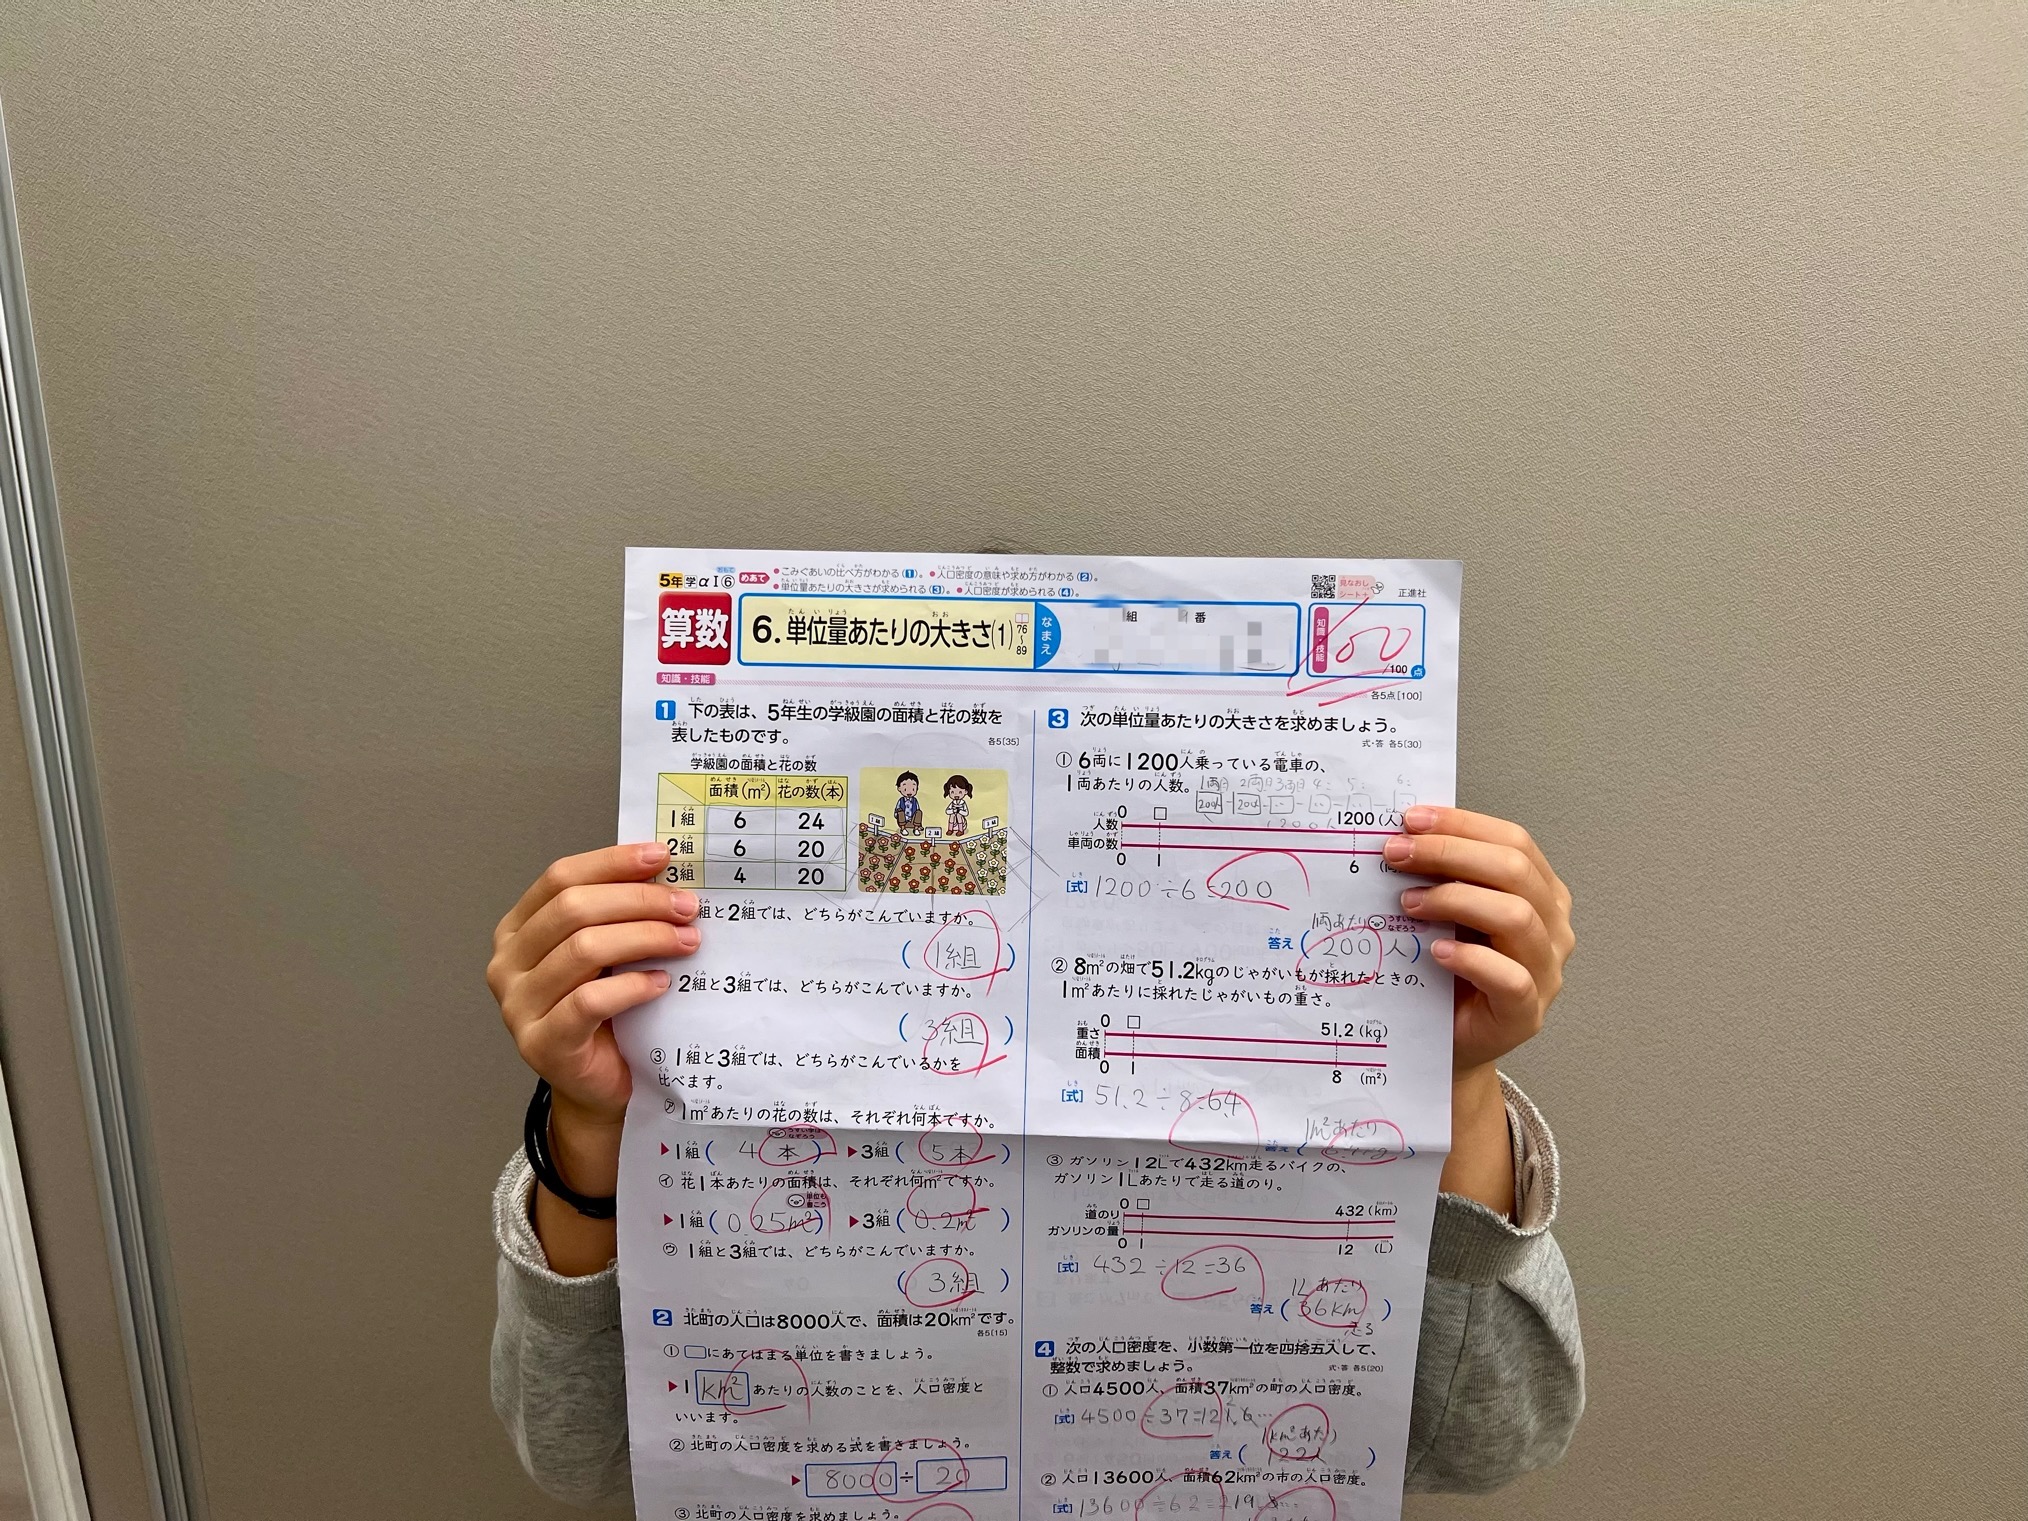 5年 学αⅠ⑥ おもて
めあて ●こみぐあいの比べ方がわかる(1)。 ●人口密度の意味や求め方がわかる(2)。
●単位量あたりの大きさが求められる(3)。 ●人口密度が求められる(4)。
見なおしシート+
正進社
算数
6. 単位量あたりの大きさ(1)
76〜89
なまえ
組 番
知識・技能
100
/100 点
知識・技能
各5点[100]
1 下の表は、5年生の学級園の面積と花の数を
表したものです。
各5[35]
学級園の面積と花の数
面積(m²) 花の数(本)
1組 6 24
2組 6 20
3組 4 20
1組 2組 3組
組と2組では、どちらがこんでいますか。
(1組)
2組と3組では、どちらがこんでいますか。
(3組)
③ 1組と3組では、どちらがこんでいるかを
比べます。
㋐ 1m²あたりの花の数は、それぞれ何本ですか。
うすい字はなぞろう
▶1組(4本) ▶3組(5本)
㋑ 花1本あたりの面積は、それぞれ何m²ですか。
単位も書こう
▶1組(0.25m²) ▶3組(0.2m²)
㋒ 1組と3組では、どちらがこんでいますか。
(3組)
2 北町の人口は8000人で、面積は20km²です。
各5[15]
① □にあてはまる単位を書きましょう。
▶1 km² あたりの人数のことを、人口密度と
いいます。
② 北町の人口密度を求める式を書きましょう。
▶ 8000 ÷ 20
③ 北町の人口密度を求めましょう。
3 次の単位量あたりの大きさを求めましょう。
式・答 各5[30]
① 6両に1200人乗っている電車の、
1両あたりの人数。
1両目 2両目 3両目 4: 5: 6:
200人 200
1200人
0 □ 1200(人)
人数
車両の数
0 1 6
[式] 1200÷6=200
1両あたり
うすい字は なぞろう
答え (200人)
② 8m²の畑で51.2kgのじゃがいもが採れたときの、
1m²あたりに採れたじゃがいもの重さ。
0 □ 51.2(kg)
重さ
面積
0 1 8 (m²)
[式] 51.2÷8=6.4
1m²あたり
答え (6.4kg)
③ ガソリン12Lで432km走るバイクの、
ガソリン1Lあたりで走る道のり。
0 □ 432(km)
道のり
ガソリンの量
0 1 12 (L)
[式] 432÷12=36
1Lあたり
答え (36km)
走る
4 次の人口密度を、小数第一位を四捨五入して、
整数で求めましょう。
式・答 各5[20]
① 人口4500人、面積37km²の町の人口密度。
[式] 4500÷37=121.6…
1km²あたり
答え (122人)
② 人口13600人、面積62km²の市の人口密度。
[式] 13600÷62=219.8…